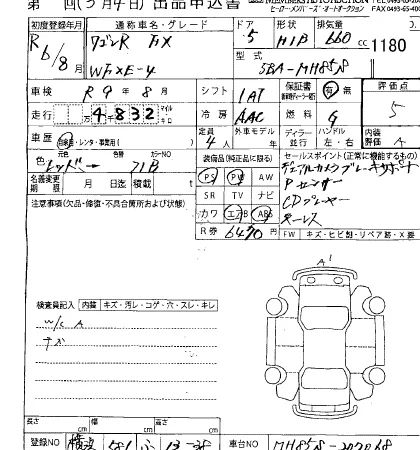 第 回(3月4日) 出品申込書 MEMBERS AUTO AUCTION
ヒーローメンバーズ・オートオークション FAX 0493-65-400
初度登録年月 通称車名・グレード ドア 形状 排気量
R6/8月 ワゴンR FX 5 H/B 660 cc 1180
WFXE-4 型式 5BA-MH85S
車検 R 9 年 8 月 シフト IAT 保証書 有 無 評価点
走行 万 4 千 8 3 2 マイル キロ 冷房 AAC 燃料 G 5
車歴 自家用・レンタ・事業用( ) 定員 4人 外車モデル 年 ディーラー 並行 ハンドル 左・右 内装評価 A
色 元色 レッド 色替 カラーNO 71B 装備品(純正品に限る) セールスポイント(正常に機能するもの)
名義変更期限 月 日迄 積載 t PS PW AW デュアルカメラブレーキサポート
SR TV ナビ Pセンサー
注意事項(欠品・修復・不具合箇所および状態) カワ エアB ABS CDプレーヤー
R券 6470 円 キーレス
FW キズ・ヒビ割・リペア跡・X要
A1
検査員記入 内装 キズ・汚レ・コゲ・穴・スレ・キレ
W/C A
ナズ
長さ cm 幅 cm 高さ cm
登録NO 横浜 581 車台NO MH85S-